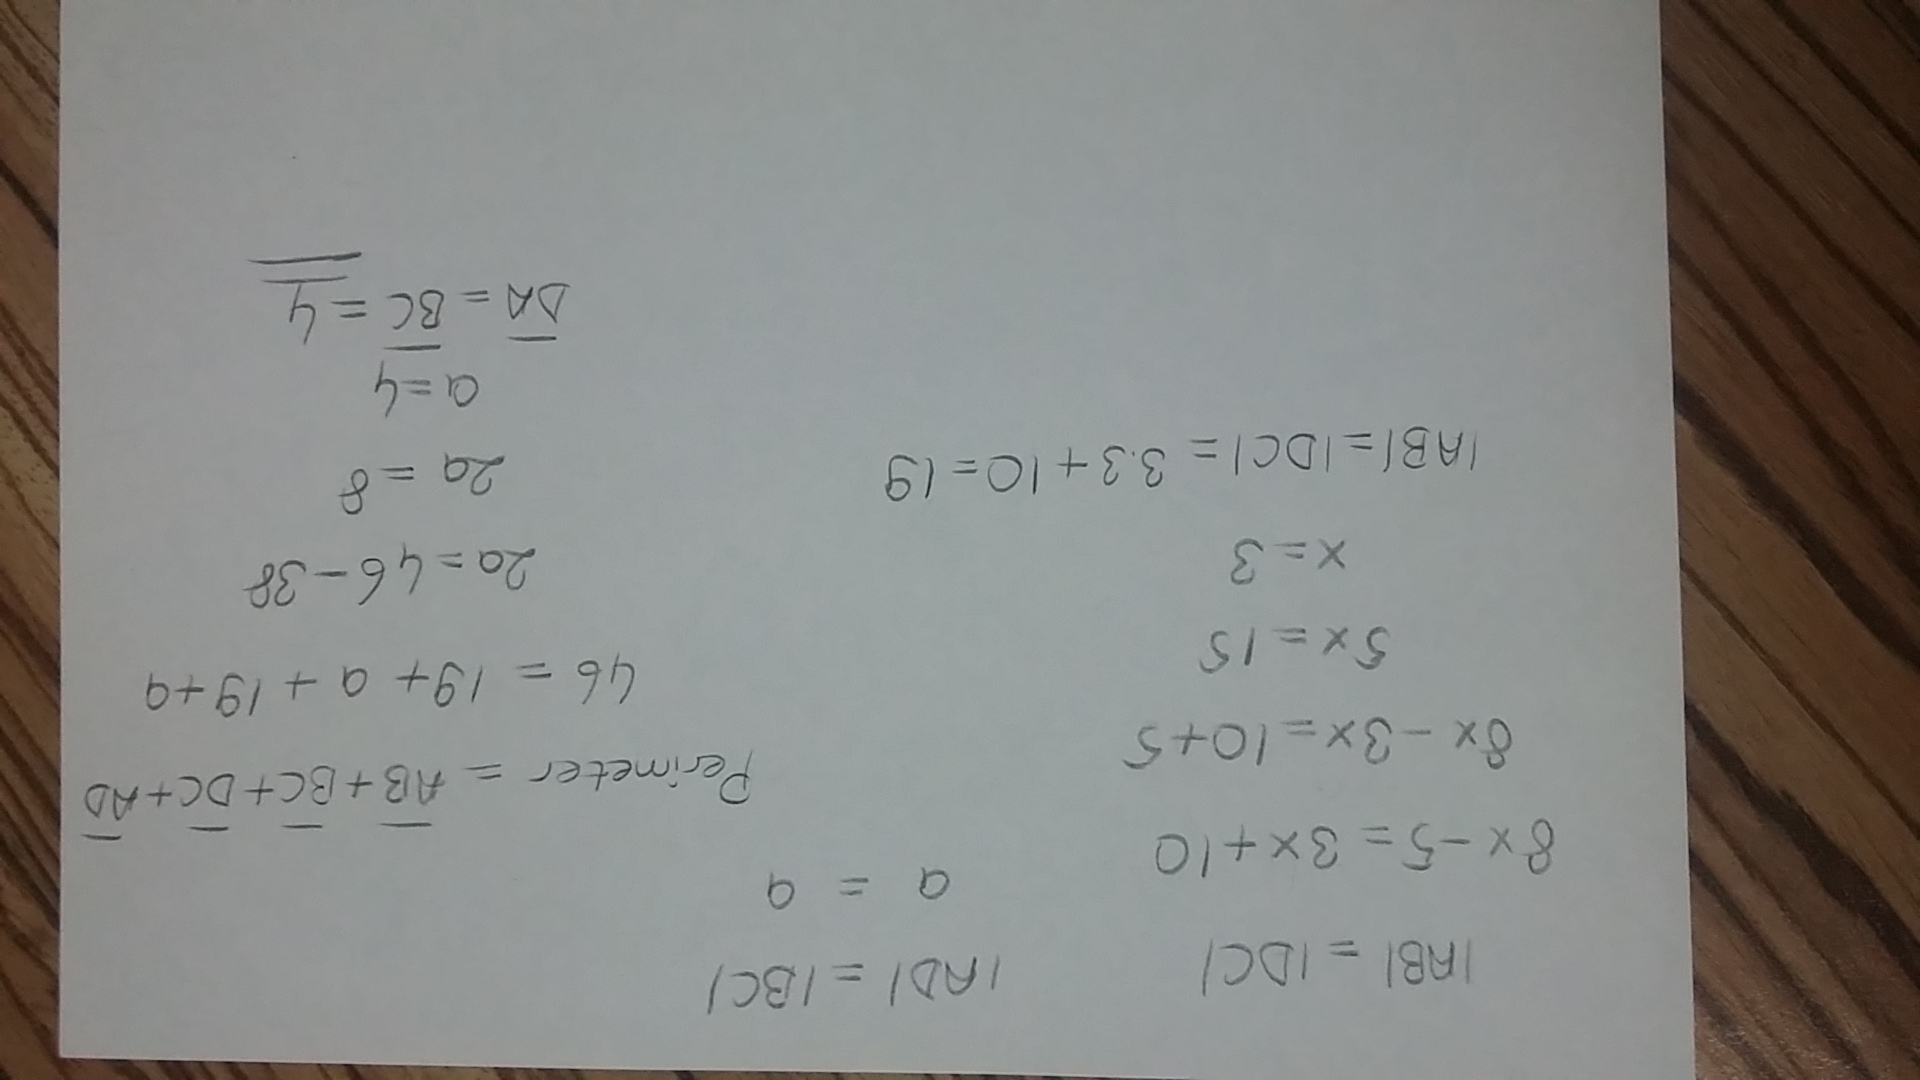 |AB| = |DC|
8x - 5 = 3x + 10
8x - 3x = 10 + 5
5x = 15
x = 3
|AB| = |DC| = 3.3 + 10 = 19
|AD| = |BC|
a = a
Perimeter = AB + BC + DC + AD
46 = 19 + a + 19 + a
2a = 46 - 38
2a = 8
a = 4
DA = BC = 4